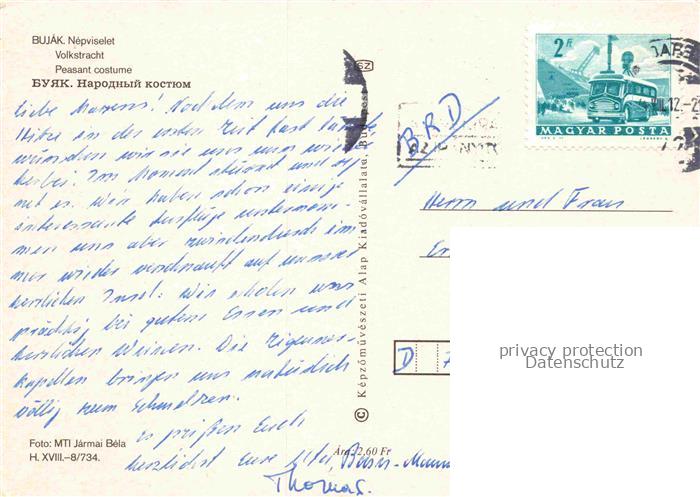 BUJÁK. Népviselet
Volkstracht
Peasant costume
БУЯК. Народный костюм
2 Ft
MAGYAR POSTA
BRD
Liebe Mamms! Nachdem uns die
Hitze in der ersten Zeit fast
wünschen wir sie uns nun wieder
herbei! Im Moment stürmt und
net es. Wir haben schon einige
interessante Ausflüge unternom-
men uns aber zwischendurch im-
mer wieder verschnauft auf unserer
herrlichen Insel. Wir erholen uns
prächtig bei gutem Essen und
herrlichen Weinen. Die Zigeuner-
kapellen bringen uns natürlich
völlig zum Schmelzen.
Es grüßen Euch
herzlichst Eure
Thomas.
Herrn und Frau
D
Képzőművészeti Alap Kiadóvállalata, Bu
Foto: MTI Jármai Béla
H. XVIII.–8/734.
Ára: 2,60 Ft
privacy protection
Datenschutz